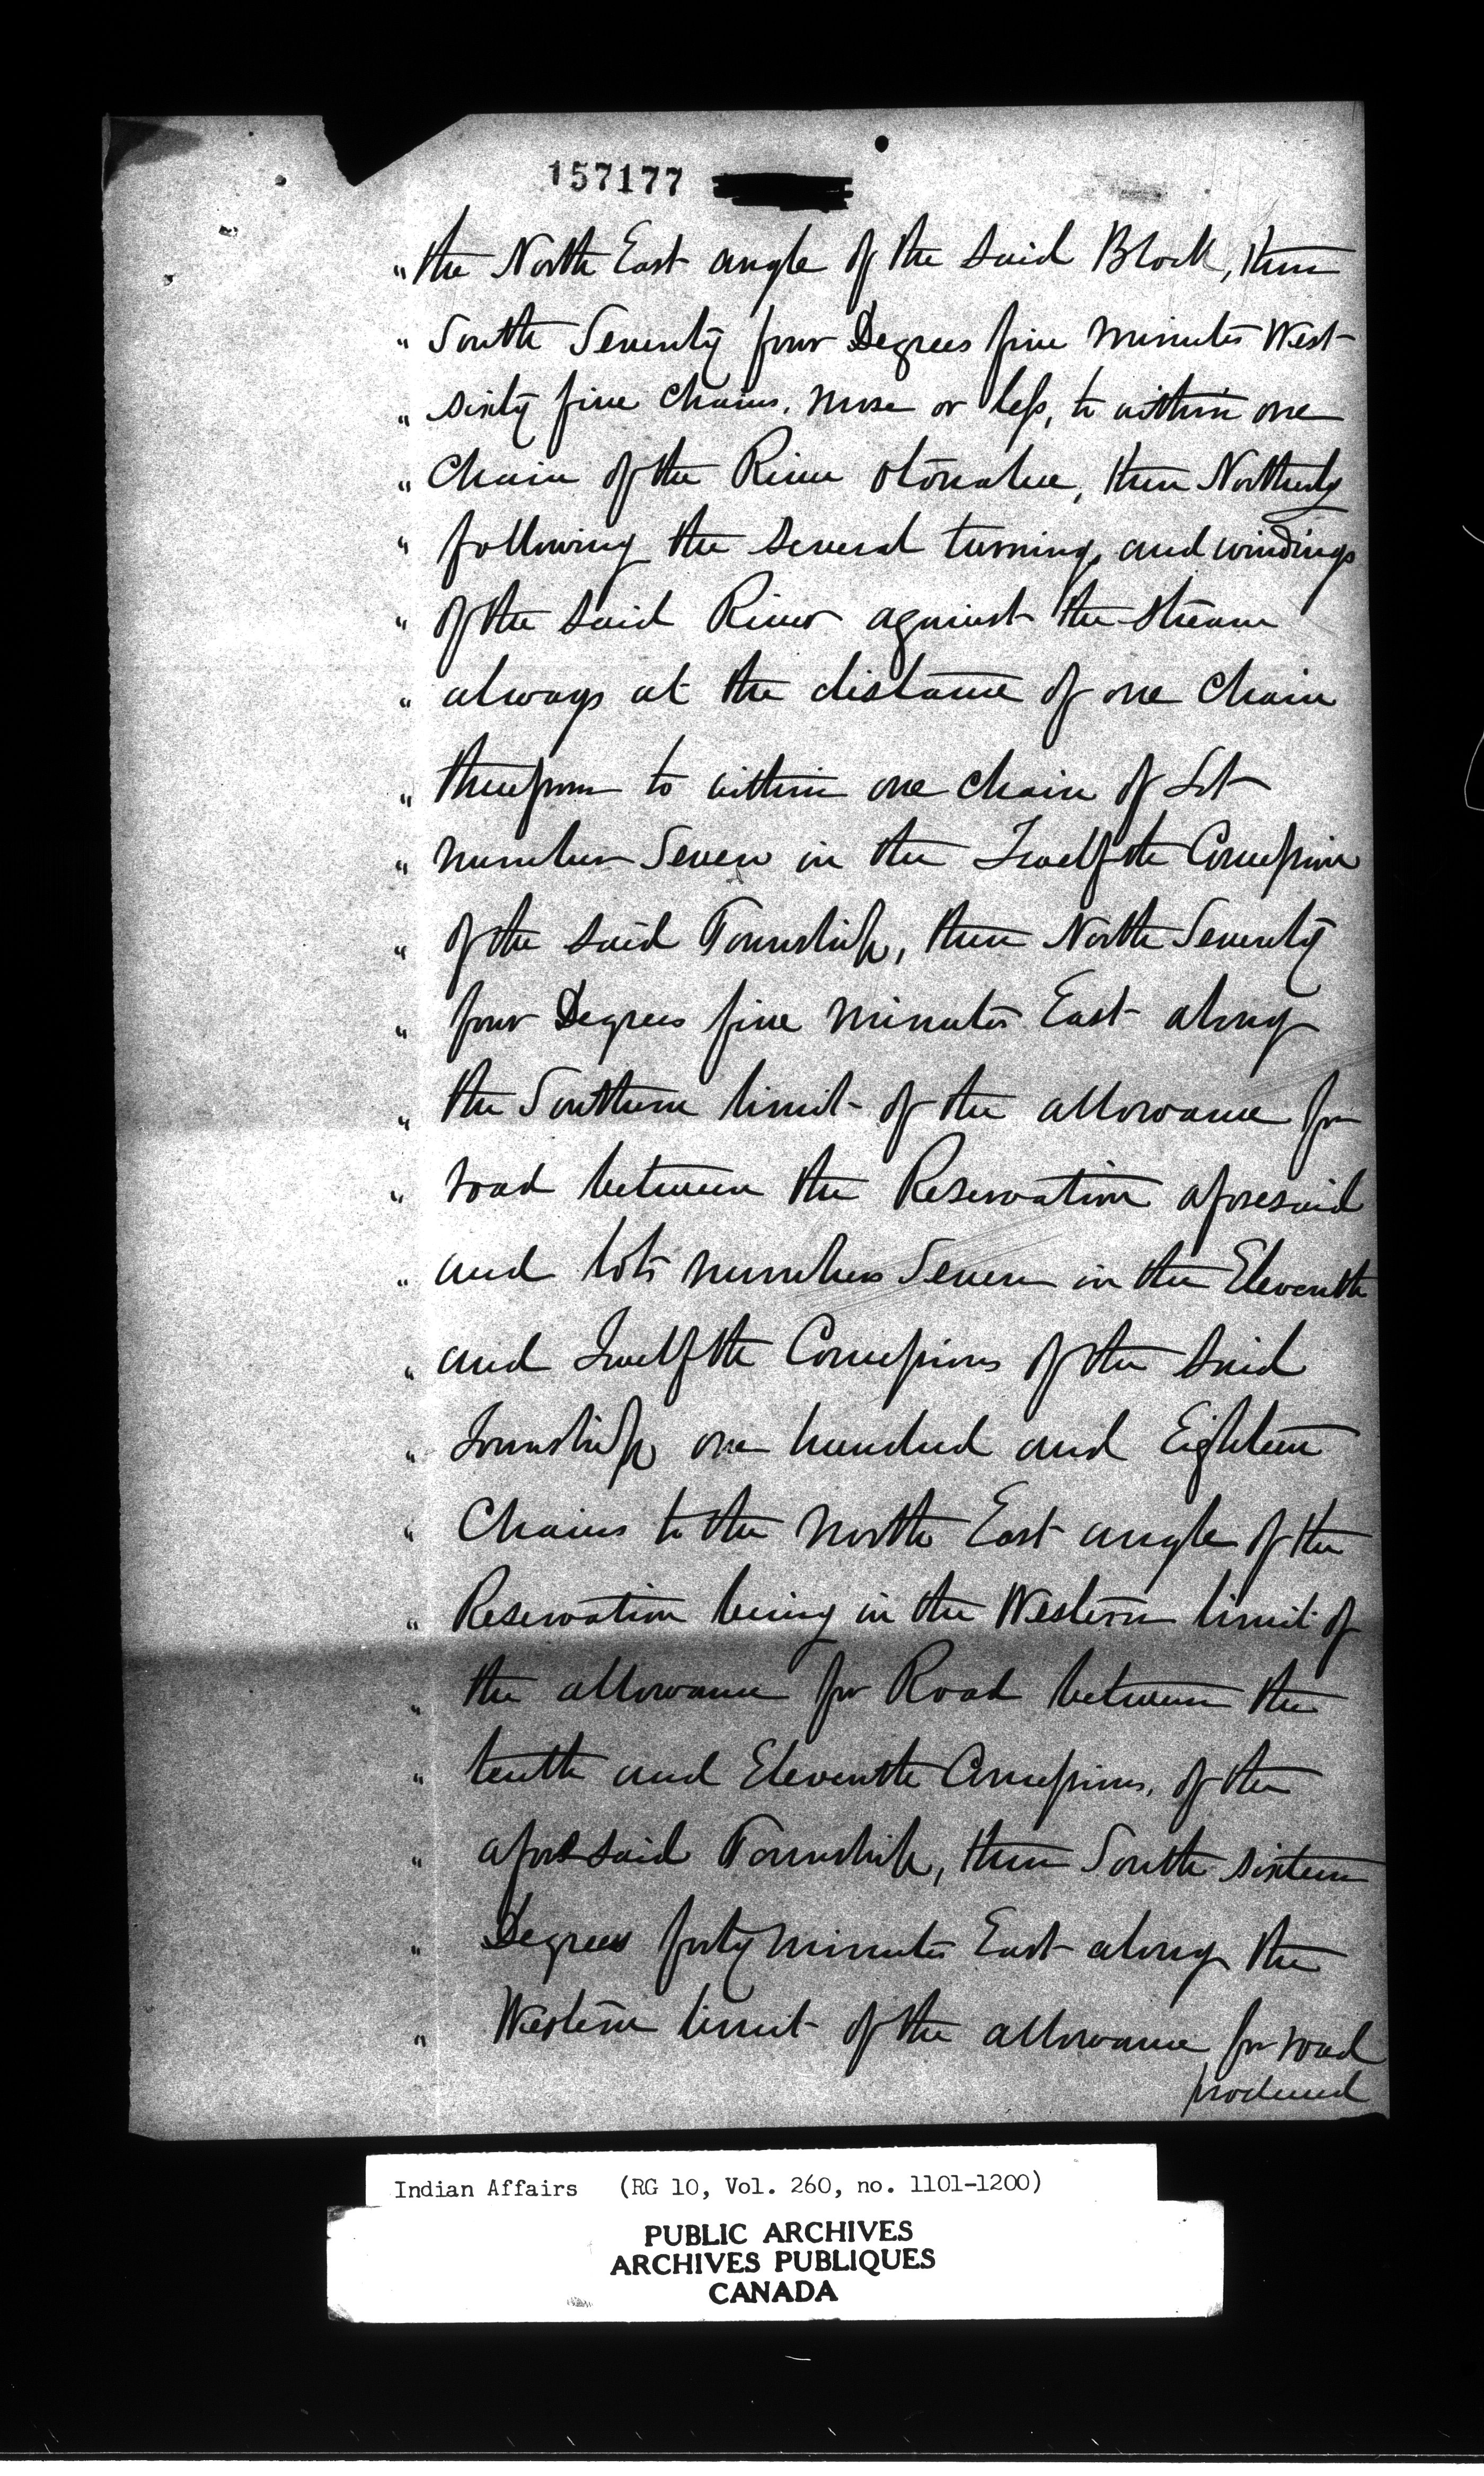 157177
" the North East angle of the said Block, then
" South Seventy four Degrees five minutes West
" sixty five chains, more or less, to within one
" Chain of the River otonabee, then Northerly
" following the several turnings and windings
" of the said River against the stream
" always at the distance of one chain
" therefrom to within one chain of Lot
" number Seven in the Twelfth Concession
" of the said Township, then North Seventy
" four Degrees five minutes East along
" the Southern limit of the allowance for
" road between the Reservation aforesaid
" and lots numbers Seven in the Eleventh
" and Twelfth Concessions of the said
" Township one hundred and Eighteen
" Chains to the north East angle of the
" Reservation being in the Western limit of
" the allowance for Road between the
" tenth and Eleventh Concessions, of the
" aforesaid Township, then South sixteen
" Degrees forty minutes East along the
" Western limit of the allowance for road
produced
Indian Affairs (RG 10, Vol. 260, no. 1101-1200)
PUBLIC ARCHIVES
ARCHIVES PUBLIQUES
CANADA